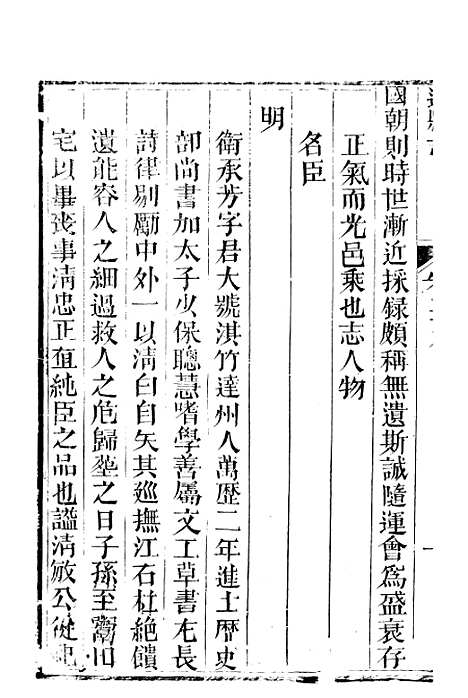 達縣志
國朝則時世漸近採録頗稱無遺斯誠隨運會爲盛衰存
正氣而光邑乘也志人物
名臣
明
衛承芳字君大號淇竹達州人萬歷二年進士歷吏
部尚書加太子少保聰慧嗜學善屬文工草書尢長
詩律剔勵中外一以淸白自矢其廵撫江右杜絶饋
遺能容人之細過救人之危歸塟之日子孫至鬻旧
宅以畢丧事淸忠正直純臣之品也謚淸敏公從祀